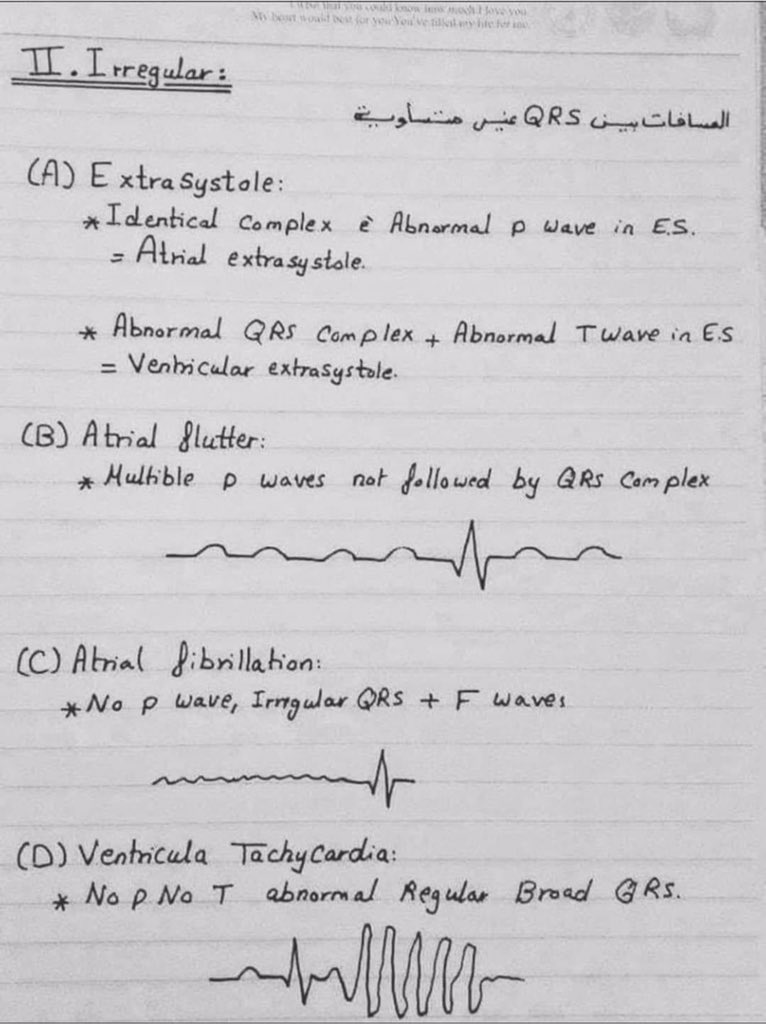 I wish that you could know how much I love you
My heart would beat for you You've filled my life for me
II. Irregular:
المسافات بين QRS غير متساوية
(A) Extrasystole:
* Identical Complex è Abnormal p wave in E.S.
= Atrial extrasystole.
* Abnormal QRS Complex + Abnormal T wave in E.S
= Ventricular extrasystole.
(B) Atrial flutter:
* Multible p waves not followed by QRS Complex
(C) Atrial fibrillation:
* No p wave, Irrigular QRS + F waves
(D) Ventricula Tachycardia:
* No p No T abnormal Regular Broad QRS.